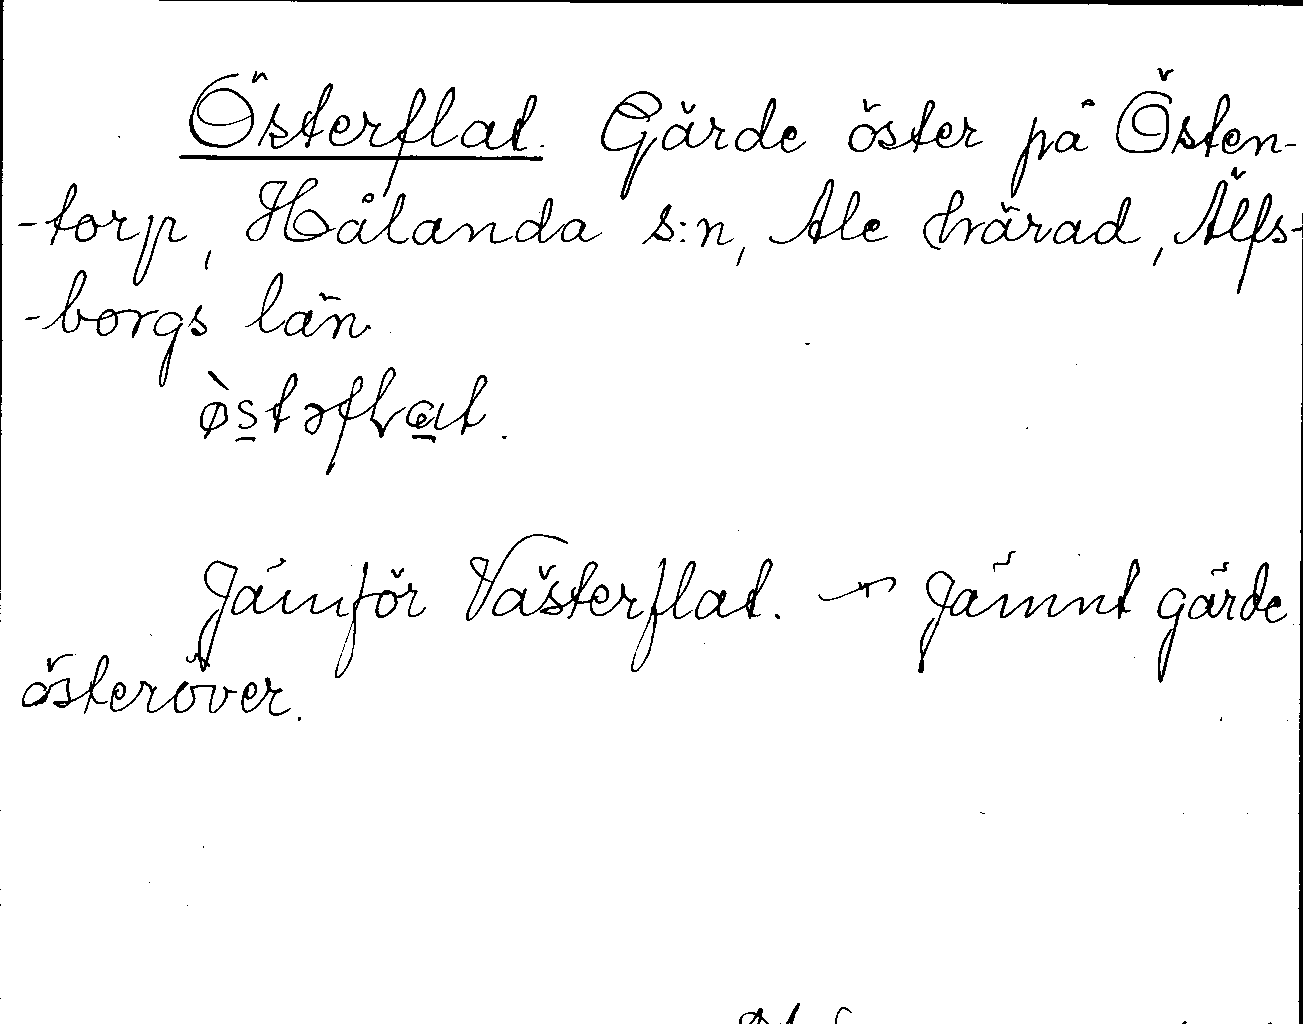 Österflat. Gärde öster på Östen-
-torp, Hålanda s:n, Ale härad, Älfs-
-borgs län
ø̀s̲təflɑ̲t.
Jämför Västerflat. – Jämnt gärde
österöver.